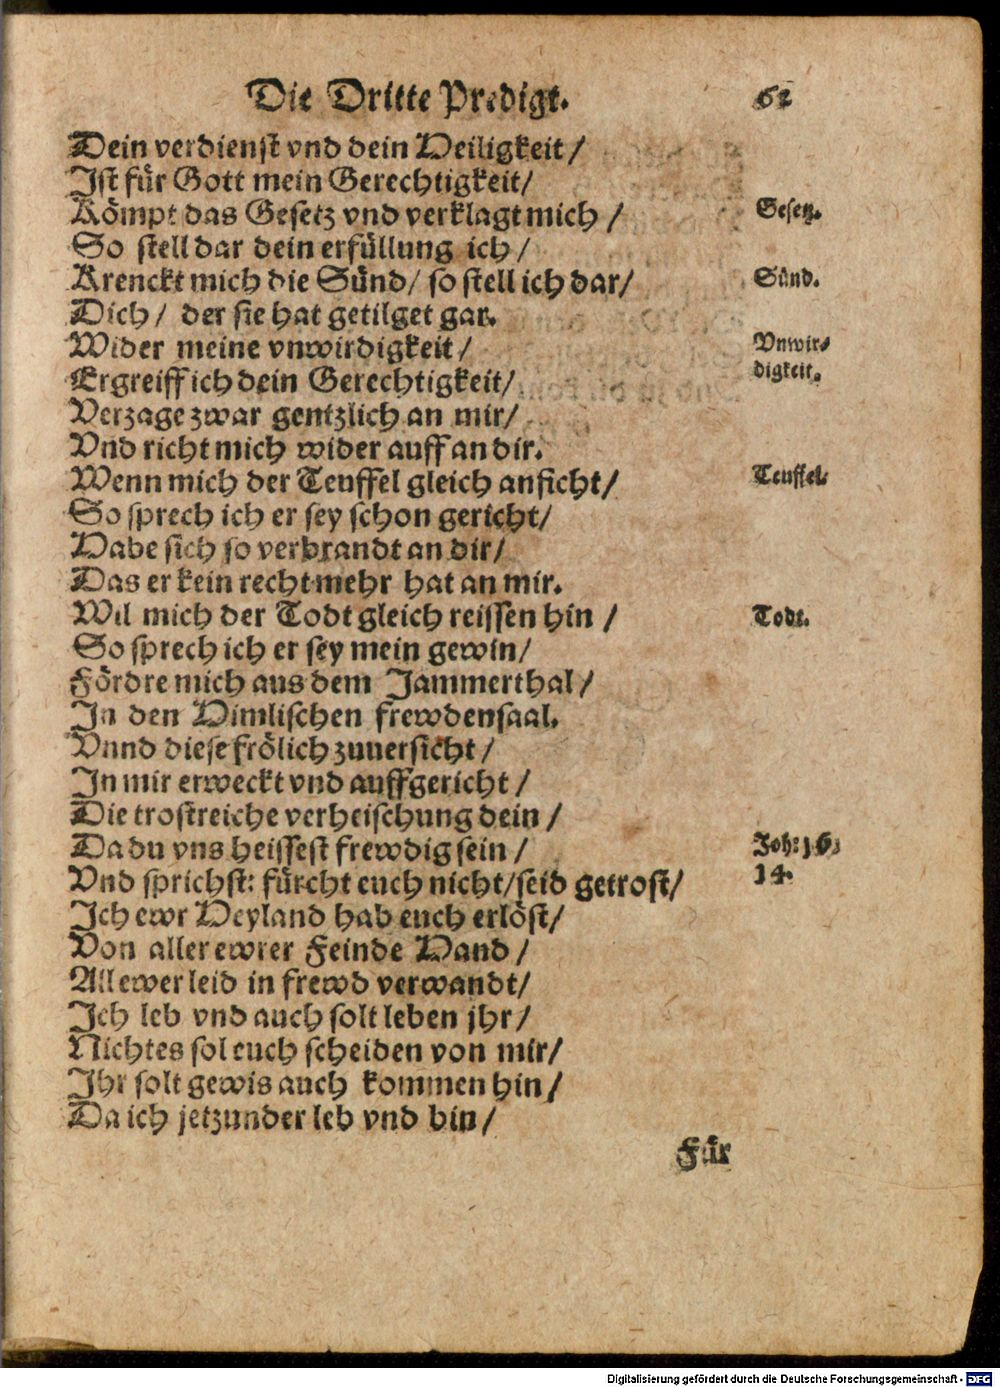 Die Dritte Predigt. 62
Dein verdienst vnd dein Heiligkeit /
Ist für Gott mein Gerechtigkeit /
Kömpt das Gesetz vnd verklagt mich / Gesetz.
So stell dar dein erfüllung ich /
Krenckt mich die Sünd / so stell ich dar / Sünd.
Dich / der sie hat getilget gar.
Wider meine vnwirdigkeit / Vnwir-
Ergreiff ich dein Gerechtigkeit / digkeit.
Verzage zwar gentzlich an mir /
Vnd richt mich wider auff an dir.
Wenn mich der Teuffel gleich anficht / Teuffel.
So sprech ich er sey schon gericht /
Habe sich so verbrandt an dir /
Das er kein recht mehr hat an mir.
Wil mich der Todt gleich reissen hin / Todt.
So sprech ich er sey mein gewin /
Fördre mich aus dem Jammerthal /
In den Himlischen frewdensaal.
Vnnd diese frölich zuuersicht /
In mir erweckt vnd auffgericht /
Die trostreiche verheischung dein /
Da du vns heissest frewdig sein / Joh: 16.
Vnd sprichst: fürcht euch nicht / seid getrost / 14.
Ich ewr Heyland hab euch erlöst /
Von aller ewrer Feinde Hand /
All ewer leid in frewd verwandt /
Ich leb vnd auch solt leben jhr /
Nichtes sol euch scheiden von mir /
Ihr solt gewis auch kommen hin /
Da ich jetzunder leb vnd bin /
Für
Digitalisierung gefördert durch die Deutsche Forschungsgemeinschaft - DFG